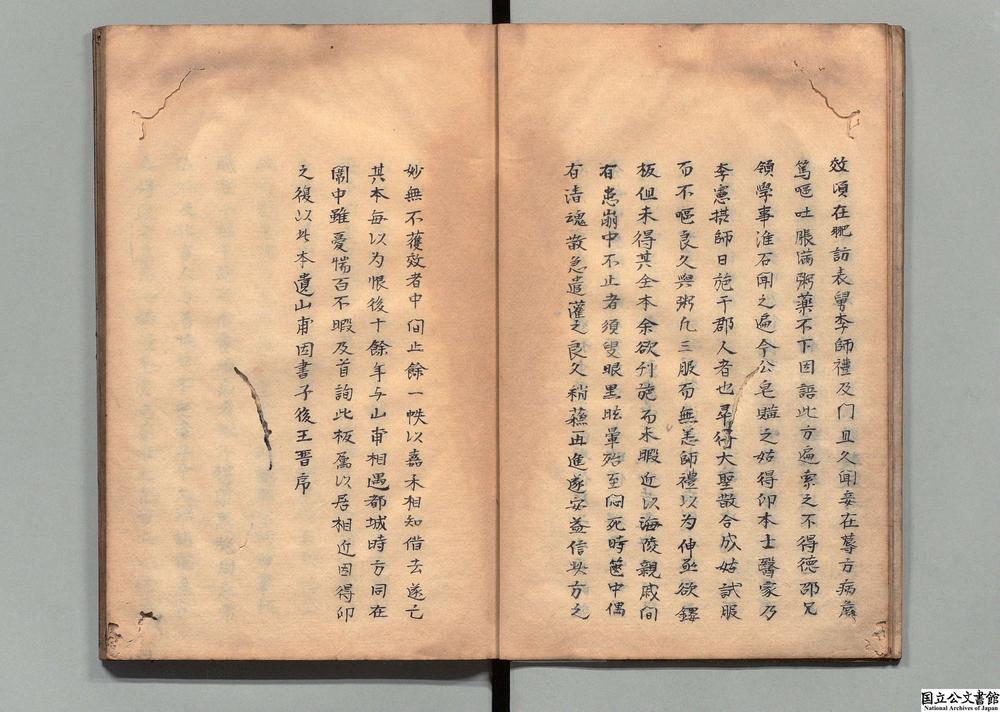 效頃在肥訪表舅李師禮及门且久闻妾在蓐方病歲
篤嘔吐脹满粥藥不下因語此方遍索之不得德邵兄
領學事淮石闻之遍令公皂賍之姑得印本士醫家乃
李憲揆師日施于郡人者也尋得大聖散合成姑試服
而不嘔良久與粥凢三服而無恙師禮以为伸亟欲鏤
板但未得其全本余欲刋施而未暇近以海陵親戚间
有患崩中不止者須臾眼黒眩暈殆至悶死時箧中偶
有清魂散急遣灌之良久稍蘓再進遂安益信此方之
妙無不獲效者中间止餘一帙以嘉未相知借去遂亡
其本每以为恨後十餘年与山甫相遇都城時方同在
闈中雖憂惴百不暇及首詢此板属以居相近因得印
之復以此本遺山甫因書于後王晋席
国立公文書館
National Archives of Japan